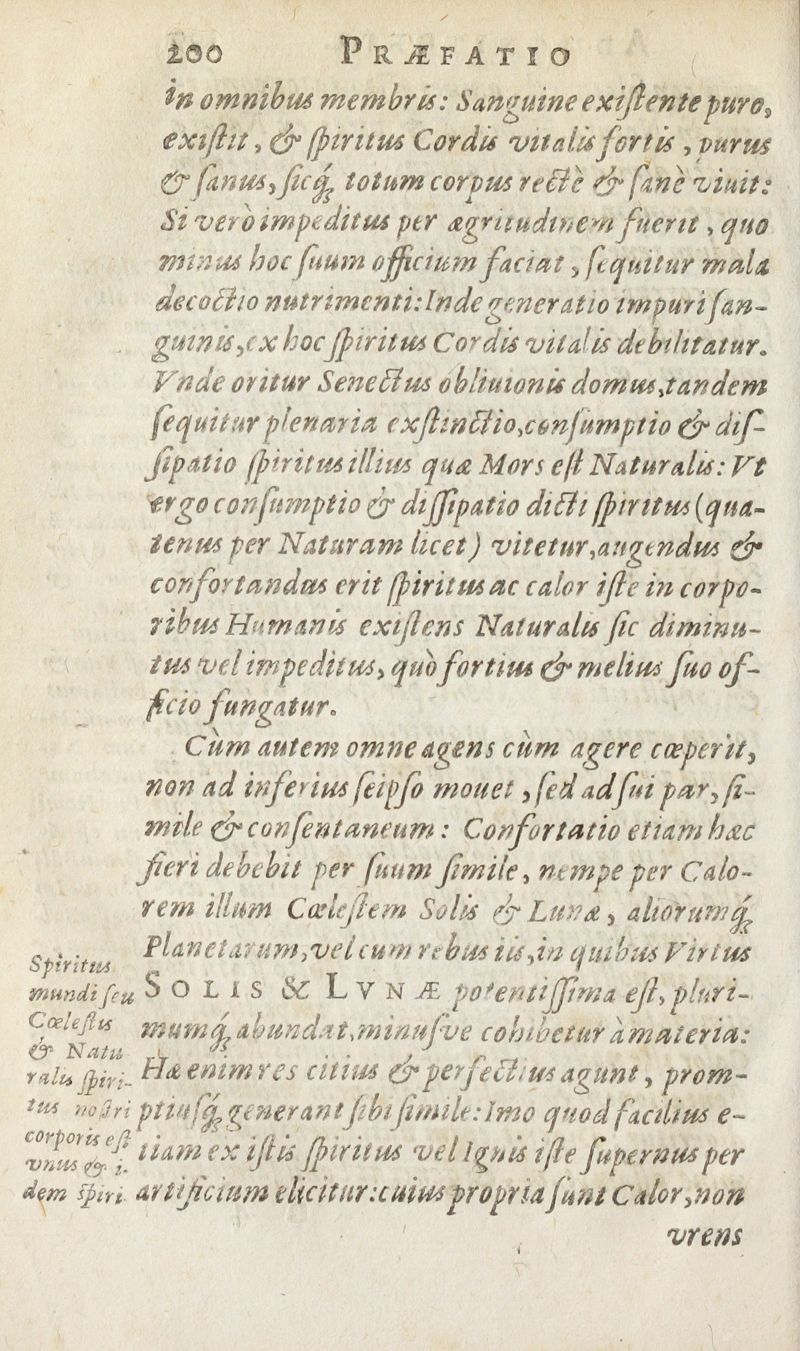 200 PRÆFATIO
in omnibus membris: Sanguine exiſtente puro,
exiſtit, & ſpiritus Cordis vitalis fortis, purus
& ſanus, ſicq́; totum corpus rectè & ſanè viuit:
Si verò impeditus per ægritudinem fuerit, quo
minus hoc ſuum officium faciat, ſequitur mala
decoctio nutrimenti: Inde generatio impuri ſan-
guinis, ex hoc ſpiritus Cordis vitalis debilitatur.
Vnde oritur Senectus obliuionis domus, tandem
ſequitur plenaria exſtinctio, conſumptio & diſ-
ſipatio ſpiritus illius quæ Mors eſt Naturalis: Vt
ergo conſumptio & diſſipatio dicti ſpiritus (qua-
tenus per Naturam licet) vitetur, augendus &
confortandus erit ſpiritus ac calor iſte in corpo-
ribus Humanis exiſtens Naturalis ſic diminu-
tus vel impeditus, quò fortius & melius ſuo of-
ficio fungatur.
Cùm autem omne agens cùm agere cœperit,
non ad inferius ſeipſo mouet, ſed ad ſui par, ſi-
mile & conſentaneum: Confortatio etiam hæc
fieri debebit per ſuum ſimile, nempe per Calo-
rem illum Cœleſtem Solis & Lunæ, aliorumq́;
Planetarum, vel cum rebus iis, in quibus Virtus
SOLIS & LVNÆ potentiſſima eſt, pluri-
mumq́; abundat, minuſve cohibetur à materia:
Hæ enim res citius & perfectius agunt, prom-
ptiuſq́; generant ſibi ſimile: Imo quod facilius e-
tiam ex iſtis ſpiritus vel Ignis iſte ſupernus per
artificium elicitur: cuius propria ſunt Calor, non
vrens
Spiritus
mundi ſeu
Cœleſtis
& Natu
ralis ſpiri-
tus noſtri
corporis eſt
vnus & i-
dem ſpiri